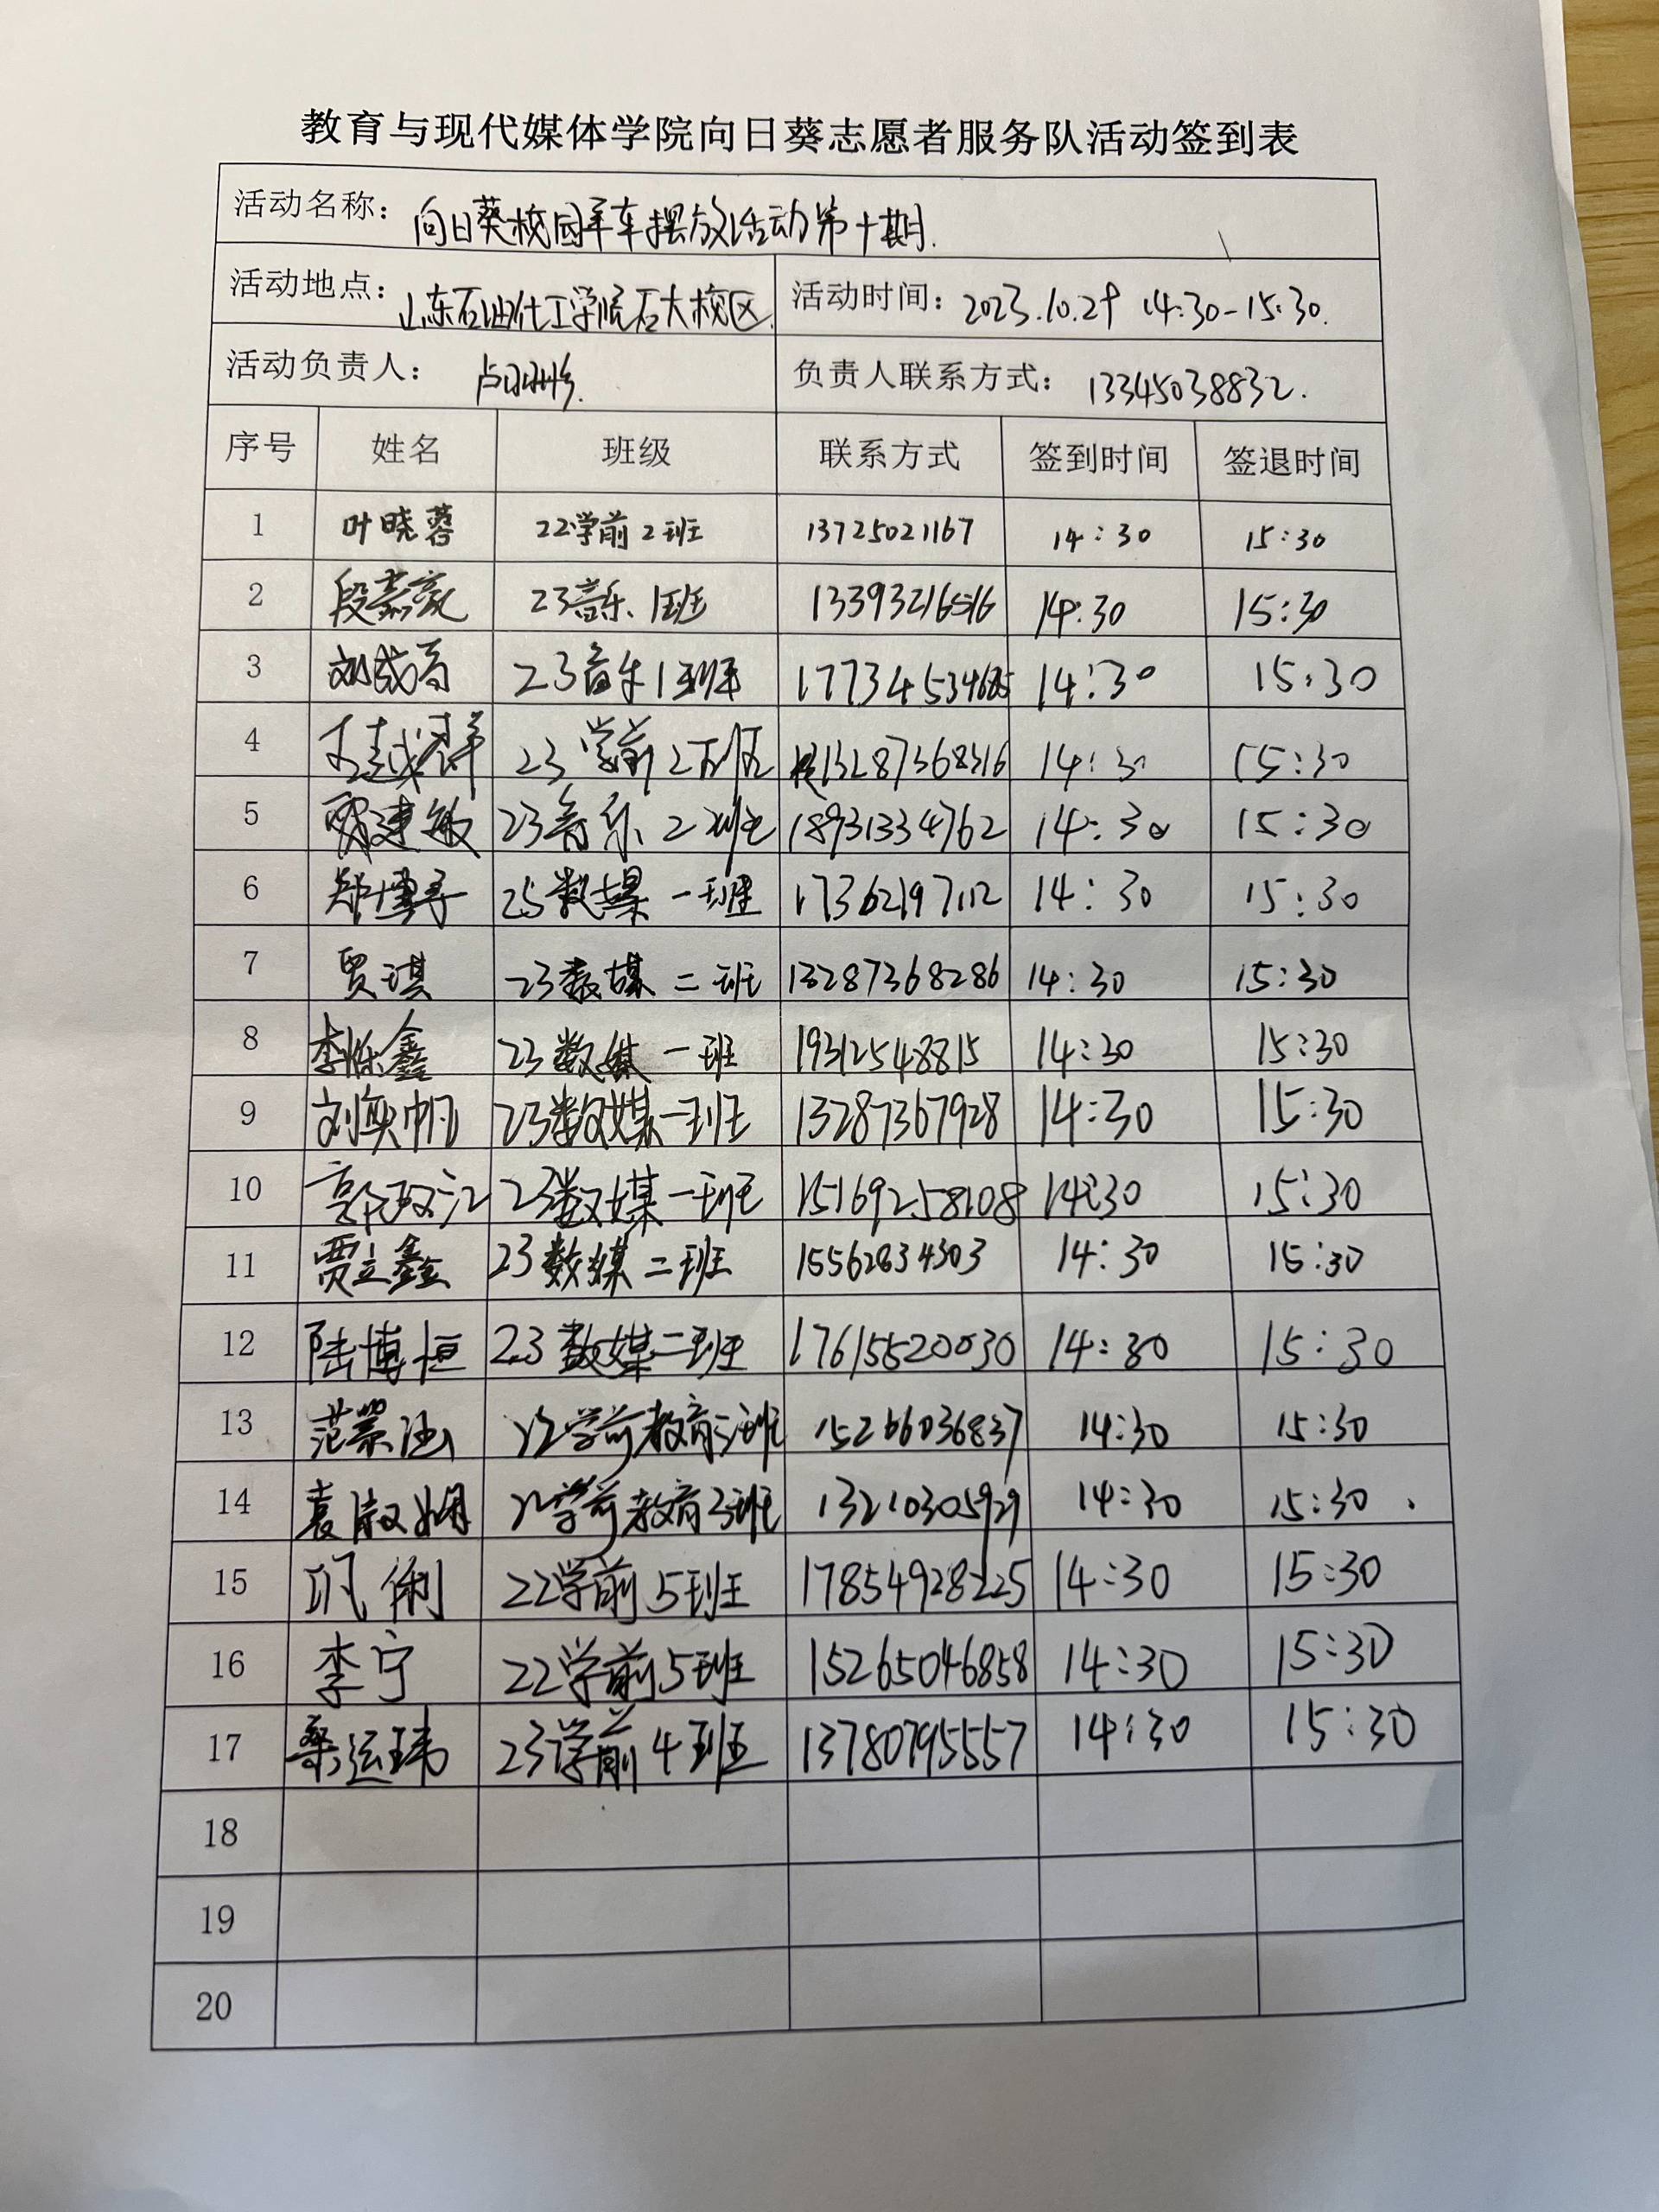 教育与现代媒体学院向日葵志愿者服务队活动签到表
活动名称：向日葵校园单车摆放活动第十期.
活动地点：山东石油化工学院石大校区 活动时间：2023.10.29 14:30-15:30.
活动负责人： 负责人联系方式：13345038832.
序号 姓名 班级 联系方式 签到时间 签退时间
1 叶晓蓉 22学前2班 13725021167 14:30 15:30
2 段嘉豪 23音乐1班 13393216516 14:30 15:30
3 23音乐1班 17734534685 14:30 15:30
4 王越祥 23学前2班 13287368316 14:30 15:30
5 贾建敏 23音乐2班 18931334762 14:30 15:30
6 数媒一班 17362197112 14:30 15:30
7 贾琪 23数媒二班 13287368286 14:30 15:30
8 李烁鑫 23数媒一班 19312548815 14:30 15:30
9 刘奕帆 23数媒一班 13287367928 14:30 15:30
10 23数媒一班 15169258108 14:30 15:30
11 贾立鑫 23数媒二班 15562834303 14:30 15:30
12 陆博恒 23数媒二班 17615520030 14:30 15:30
13 22学前教育3班 15266036837 14:30 15:30
14 袁淑娴 22学前教育3班 13210305929 14:30 15:30.
15 巩俐 22学前5班 17854928225 14:30 15:30
16 李宁 22学前5班 15265046858 14:30 15:30
17 桑运玮 23学前4班 13780795557 14:30 15:30
18
19
20